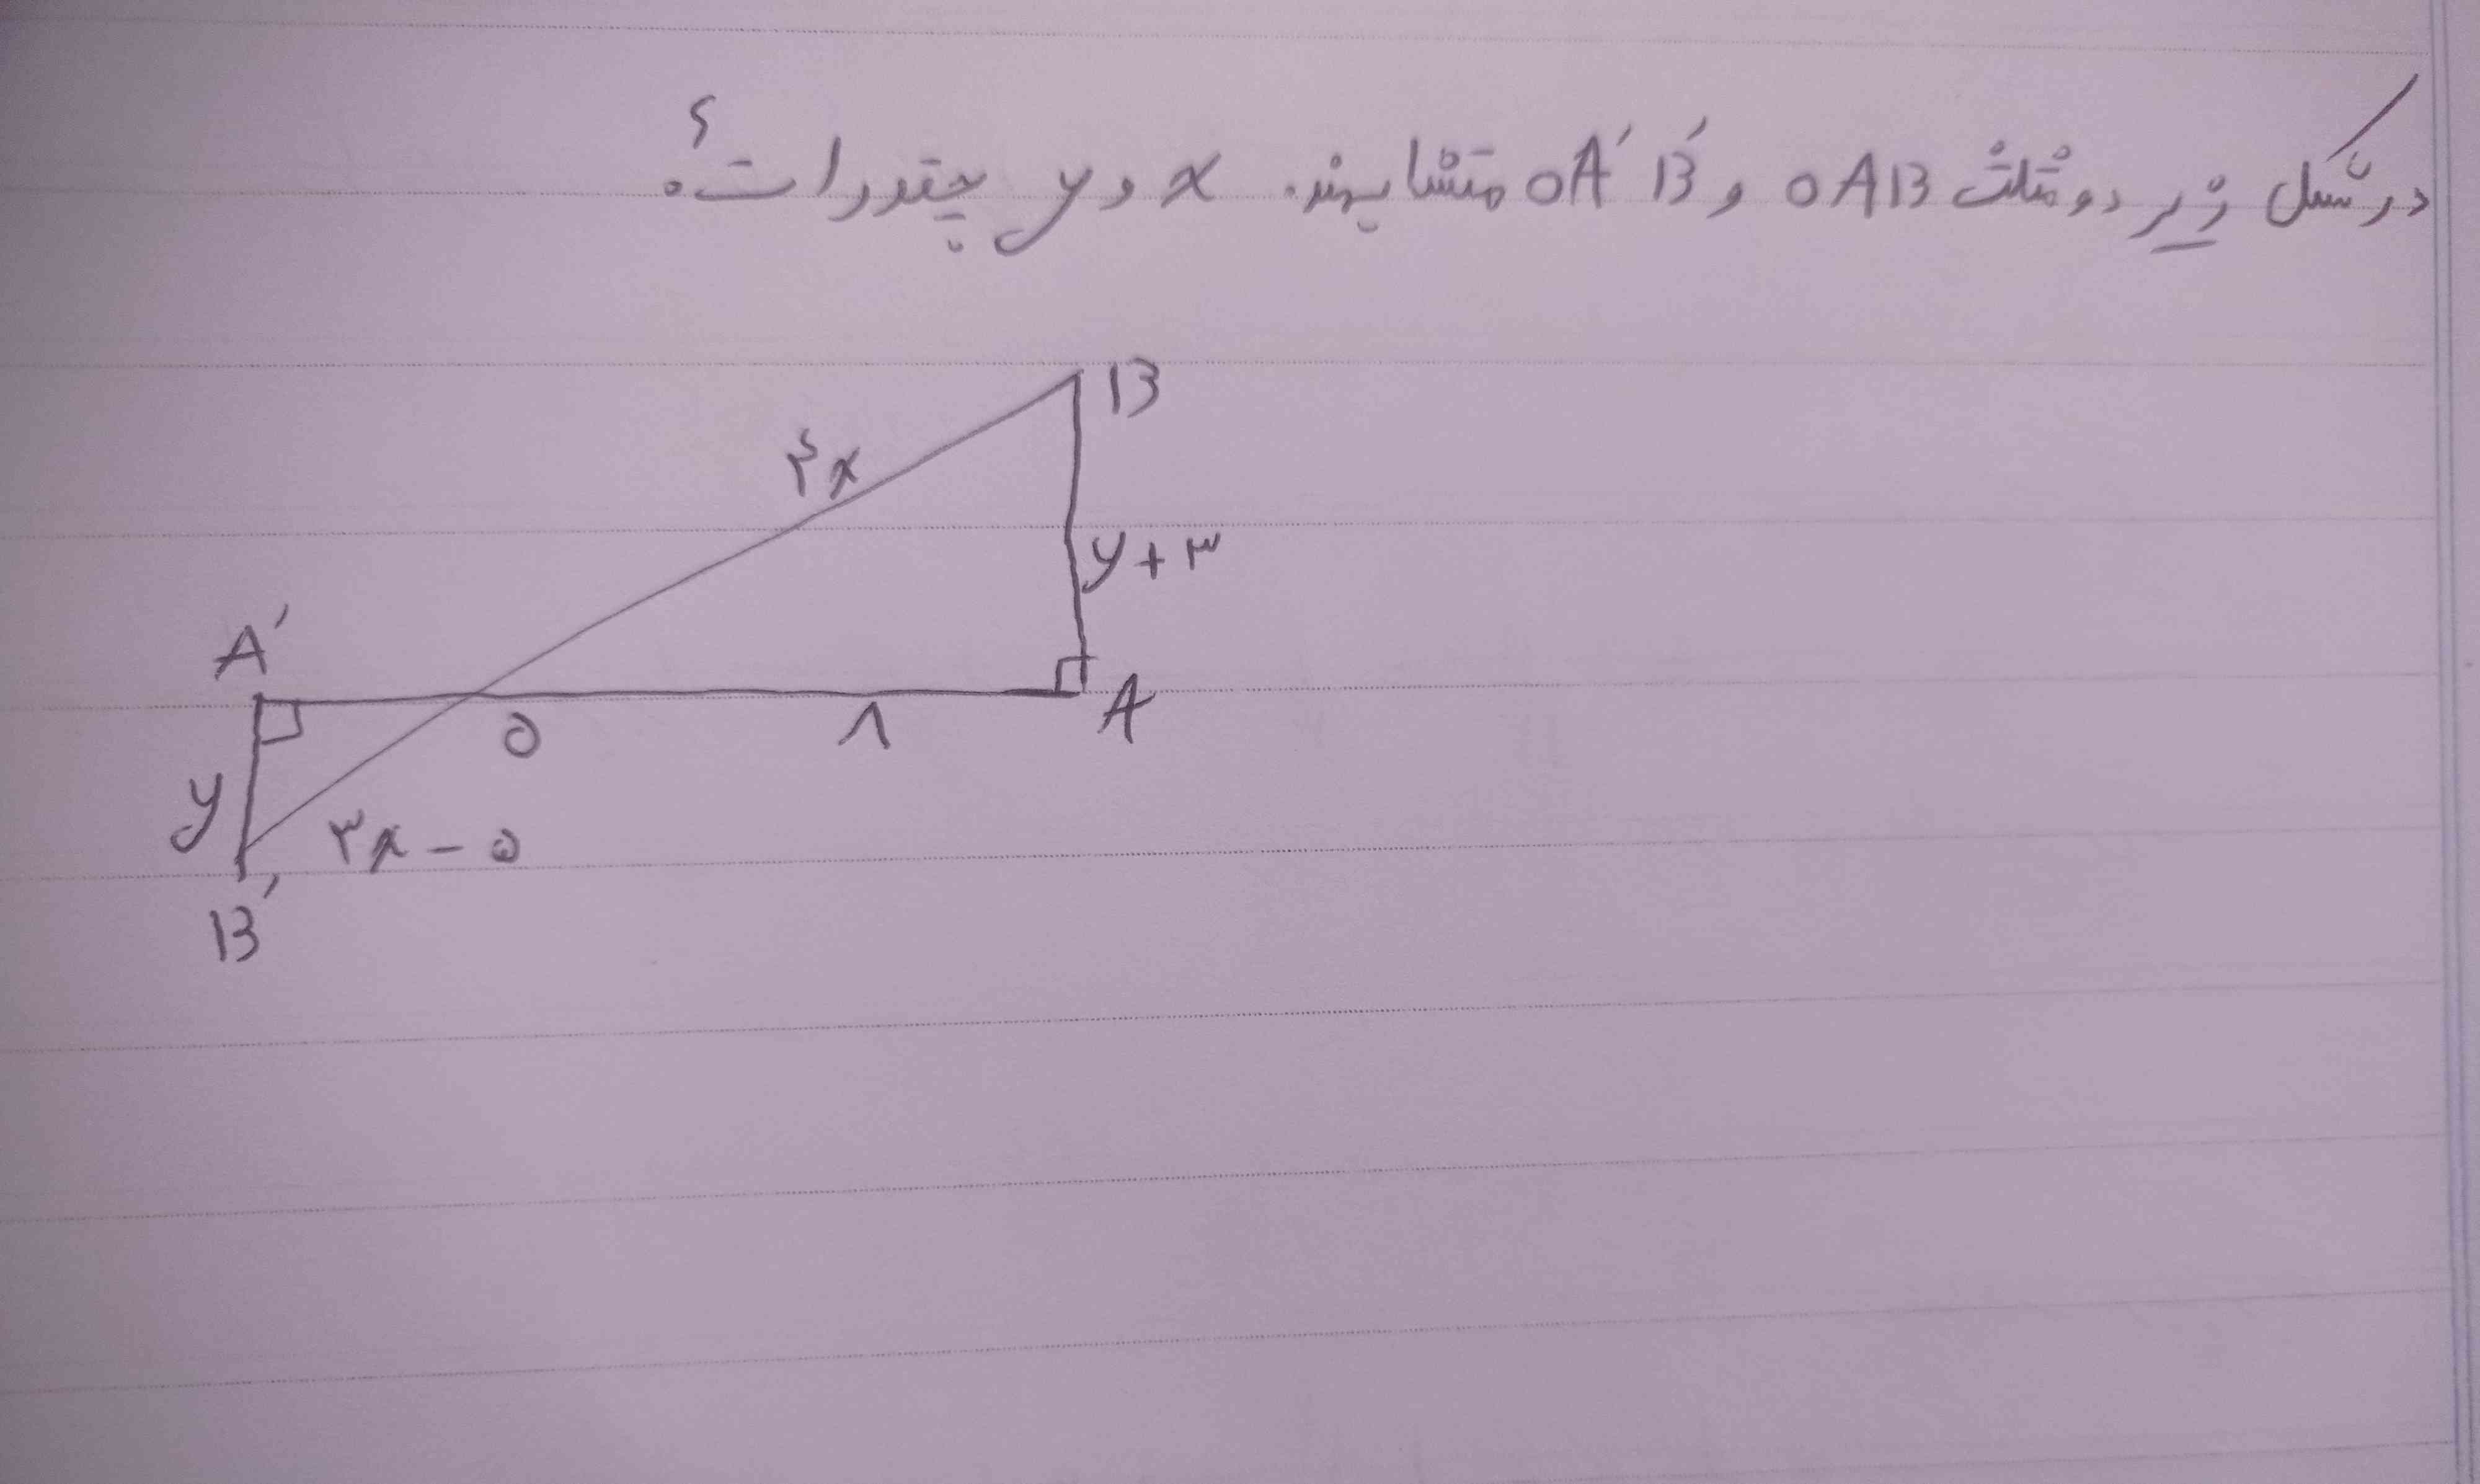 در شکل زیر دو مثلث OAB و OA'B' متشابهند. x و y چقدر است؟
B
۴x
y+۳
A'
O
۸
A
y
۳x-۵
B'